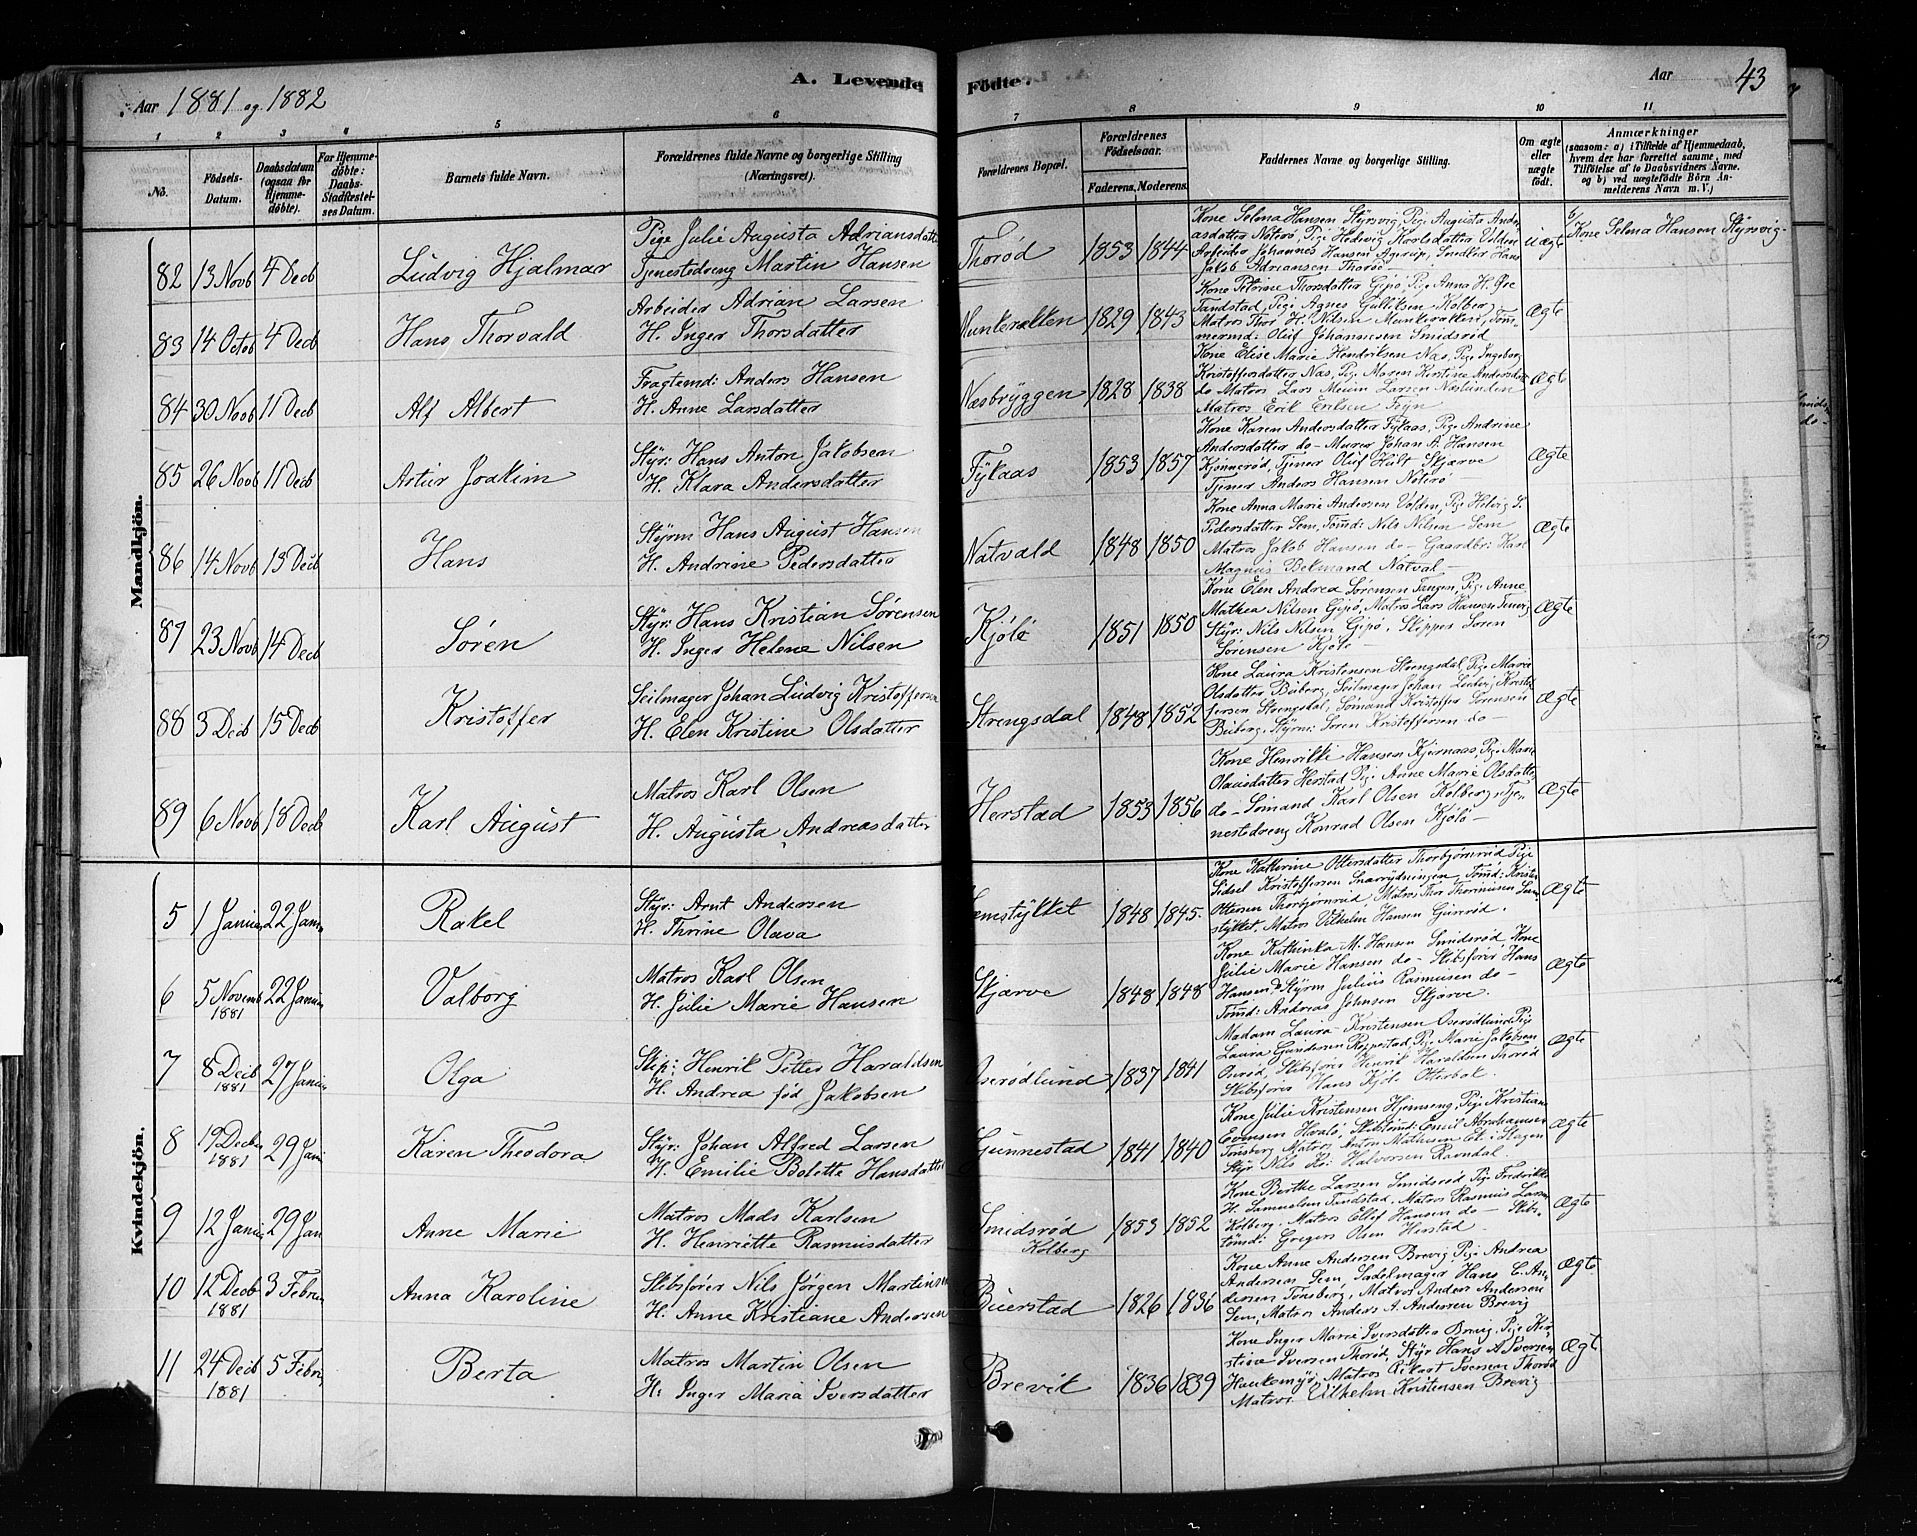 A. Levende Födte.
Aar 1881 og 1882
Aar 43
1 2 3 4 5 6 7 8 9 10 11
No.
Födsels-Datum.
Daabsdatum (ogsaa for Hjemmedöbte).
For Hjemmedöbte: Daabs-Stadfæstelses Datum.
Barnets fulde Navn.
Forældrenes fulde Navne og borgerlige Stilling (Næringsvei).
Forældrenes Bopæl.
Forældrenes Födselsaar.
Faderens. Moderens.
Faddernes Navne og borgerlige Stilling.
Om ægte eller uægte födt.
Anmærkninger
(saasom: a) i Tilfælde af Hjemmedaab, hvem der har forrettet samme, med Tilföielse af to Daabsvidners Navne. og b) ved uægtefödte Börn Anmelderens Navn m. V.)
Mandkjön.
82 13 Novb 4 Decb Ludvig Hjalmar
Pige Julie Augusta Adriansdatter
Tjenestedreng Martin Hansen
Thorød 1853 1844
Kone Selma Hansen Styrsvig, Pige Augusta Andre
asdatter Nøterø, Pige Hedevig Karlsdatter Volden
Arbeider Johannes Hansen Agerup, Smedlør Hans
Jakob Adriansen Thorød
Uægte
b/ Kone Selma Hansen Styrsvig-
83 14 Octob 4 Decb Hans Thorvald
Arbeider Adrian Larsen
H. Inger Thorsdatter
Munkerækken 1829 1843
Kone Petrine Thorsdatter Gipø, Pige Anna H. Øre
Tandstad, Pige Agnes Gulliksen Kolberg
Matros Thor H. Nilsen Munkerækken, Tøm-
mermd: Oluf Johannesen Smidsrød
Ægte
84 30 Novb 11 Decb Alf Albert
Fragtemd: Anders Hansen
H. Anne Larsdatter
Næsbryggen 1828 1838
Kone Elise Marie Hendriksen Næs, Pige Ingeborg
Kristoffersdatter Næs, Pige Maren Kirstine Andersdatter
do Matros Lars Larsen
Matros Erik Eriksen Føyn
Ægte
85 26 Novb 11 Decb Artur Joakim
Styr: Hans Anton Jakobsen
H. Klara Andersdatter
Fykaas 1853 1857
Kone Karen Andersdatter Fykaas, Pige Andrine
Andersdatter do- Murer Johan A. Hansen
Kjønnerød, Tjener Oluf Hult Skjærve
Tjener Anders Hansen Nøterø-
Ægte
86 14 Novb 13 Decb Hans
Styrm Hans August Hansen
H. Andrine Pedersdatter
Natvald 1848 1850
Kone Anna Marie Andersen Volden, Pige Helvig S.
Pedersdatter Sem, Tømd: Nils Nilsen Sem
Matros Jakob Hansen do- Gaardbr: Karl
Magnus Bekmand Natval-
Ægte
87 23 Novb 14 Decb Søren
Styr: Hans Kristian Sørensen
H. Inger Helene Nilsen
Kjølø 1851 1850
Kone Elen Andrea Sørensen Tangen, Pige Anne
Mathea Nilsen Gipø, Matros Lars Hansen
Styr: Nils Nilsen Gipø, Skipper Søren
Sørensen Kjølø-
Ægte
88 3 Decb 15 Decb Kristoffer
Seilmager Johan Ludvig Kristoffersen
H. Elen Kristine Olsdatter
Strengsdal 1848 1852
Kone Laura Kristensen Strengsdal, Pige Marie
Olsdatter Buberg, Seilmager Johan Ludvig Kristof
fersen Strengsdal, Sømand Kristoffer Sørensen
Buberg, Styrm: Søren Kristoffersen do-
Ægte
89 6 Novb 18 Decb Karl August
Matros Karl Olsen
H. Augusta Andreasdatter
Herstad 1853 1856
Kone Henrikke Hansen Kjernaas, Pige Marie
Olausdatter Herstad, Pige Anne Marie Olsdatter
do- Sømand Karl Olsen Kolberg, Tje-
nestedreng Konrad Olsen Kjølø-
Ægte
Kvindekjön.
5 1 Januar 22 Janu Rakel
Styr: Arnt Andersen
H. Thrine Olava
Semstykket 1848 1845.
Kone Katherine Ottersdatter Thorbjørnrød Pige
Sidsel Kristoffersen Snarrydningen, Tømd: Krister
Ottersen Thorbjørnrød, Matros Thor Thorinusen Sem-
stykket, Matros Vilhelm Hansen Gunrød.
Ægte
6 5 Novemb 1881 22 Janu Valborg
Matros Karl Olsen
H. Julie Marie Hansen
Skjærve 1848 1848
Kone Kathinka M. Hansen Smidsrød, Kone
Julie Marie Hansen do- Skibsfører Hans
Hansen, Styrm Julius Rasmusen do-
Tømd: Andreas Johnsen Skjærve.
Ægte
7 8 Decb 1881 27 Janu Olga
Skip: Henrik Petter Haraldsen
H. Andrea fød Jakobsen
Oserødlund 1837 1841
Madam Laura Kristensen Oserødlund, Pige
Laura Gundersen Roppestad, Pige Marie Jakobsen
Oserød, Skibsfører Henrik Haraldsen Thorød
Skibsfører Hans Kjøle Otterbæk.
Ægte
8 19 Decbr 1881 29 Janu Karen Theodora
Styr: Johan Alfred Larsen
H. Emilie Bolette Hansdatter
Gunnestad 1841 1840
Kone Julie Kristensen Hjemseng, Pige Kristiane
Evensen Hvale, Skibstmd: Emil Abrahamsen
Tønsberg Matros Anton Mathisen Ek i Slagen
Styr Nils Kr: Halvorsen Ravndal.
Ægte
9 12 Janu 29 Jan Anne Marie
Matros Mads Karlsen
H. Henriette Rasmusdatter
Smidsrød Kolberg 1853 1852
Kone Berthe Larsen Smidsrød Pige Fredrikke
H. Samuelsen Tandstad, Matros Rasmus Larsen
Kolberg. Matros Ellef Hansen do- Skibs-
tømd: Gregers Olsen Herstad
Ægte
10 12 Decb 1881 3 Februar Anna Karoline
Skibsfører Nils Jørgen Martinsen
H. Anne Kristiane Andersen
Buerstad 1826 1836
Kone Anne Andersen Brevig, Pige Andrea
Andersen Sem, Sadelmager Hans C. An-
dersen Tønsberg, Matros Anders Andersen
Sem, Matros Anders A. Andersen Brevig
Ægte
11 24 Decb 1881 5 Febru Berta
Matros Martin Olsen
H: Inger Maria Iversdatter
Brevik 1836 1839
Kone Inger Marie Iversdatter Brevig, Pige Kir-
stine Iversen Thorød, Styr Hans A Iversen
Haukemyr, Matros Rikart Iversen Thorød
Matros Vilhelm Kristensen Brevig
Ægte